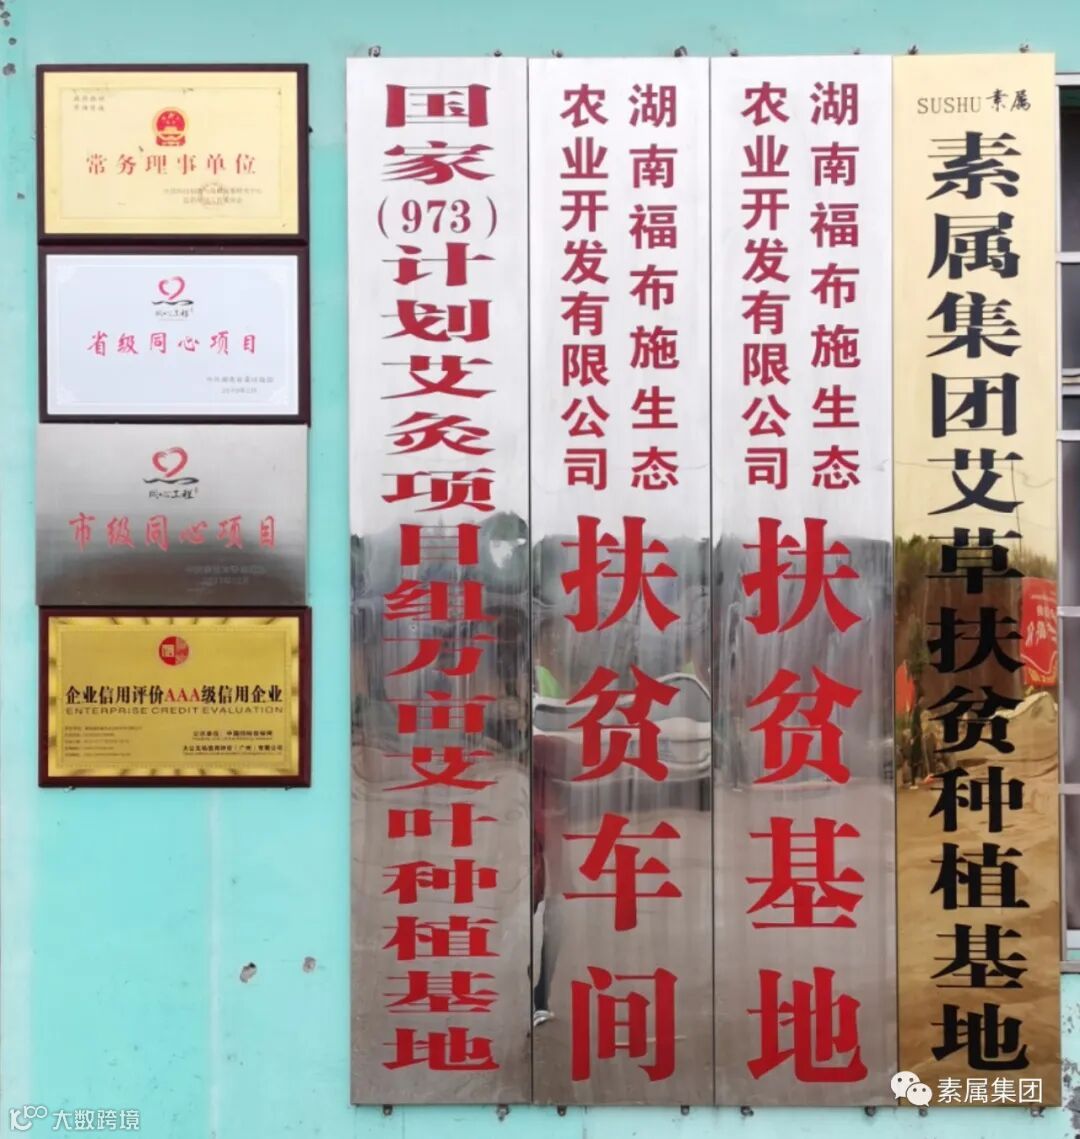 常务理事单位
同心工程
省级同心项目
同心工程
市级同心项目
信
企业信用评价AAA级信用企业
ENTERPRISE CREDIT EVALUATION
国家(973)计划艾灸项目组万亩艾叶种植基地
湖南福布施生态
农业开发有限公司
扶贫车间
湖南福布施生态
农业开发有限公司
扶贫基地
SUSHU 素属
素属集团艾草扶贫种植基地
素属集团
大数跨境